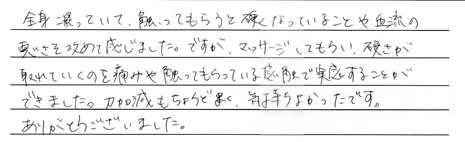 全身凝っていて、触ってもらうと硬くなっていることや血流の
悪いさを改めて感じました。ですが、マッサージしてもらい、硬さが
取れていくのを痛みや触ってもらっている感触で実感することが
できました。力加減もちょうど良く、気持ちよかったです。
ありがとうございました。